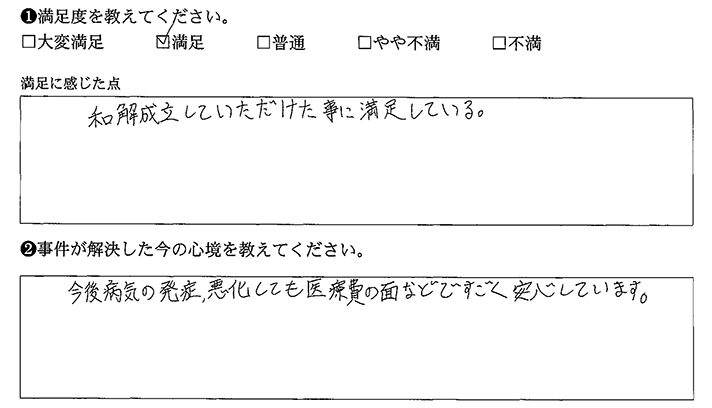 ❶満足度を教えてください。
□大変満足 ☑満足 □普通 □やや不満 □不満
満足に感じた点
和解成立していただけた事に満足している。
❷事件が解決した今の心境を教えてください。
今後病気の発症,悪化しても医療費の面などですごく安心しています。